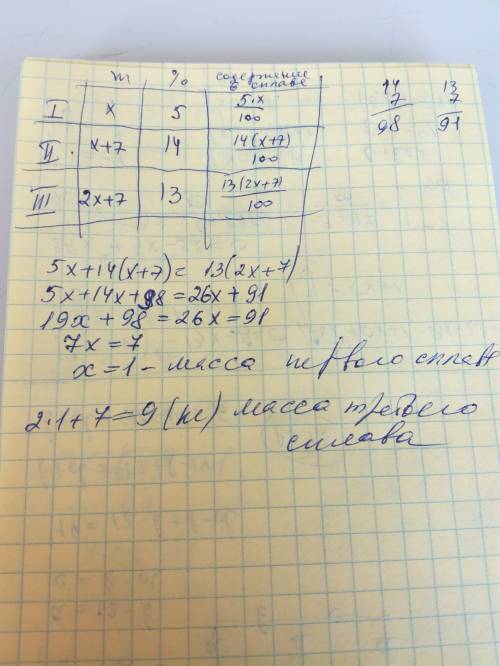 m % содержание в сплаве
I x 5 5·x/100
II. x+7 14 14(x+7)/100
III 2x+7 13 13(2x+7)/100
14 13
7 7
98 91
5x+14(x+7)= 13(2x+7)
5x+14x+98=26x+91
19x+98=26x=91
7x=7
x=1- масса первого сплава
2·1+7=9(кг) масса третьего
сплава